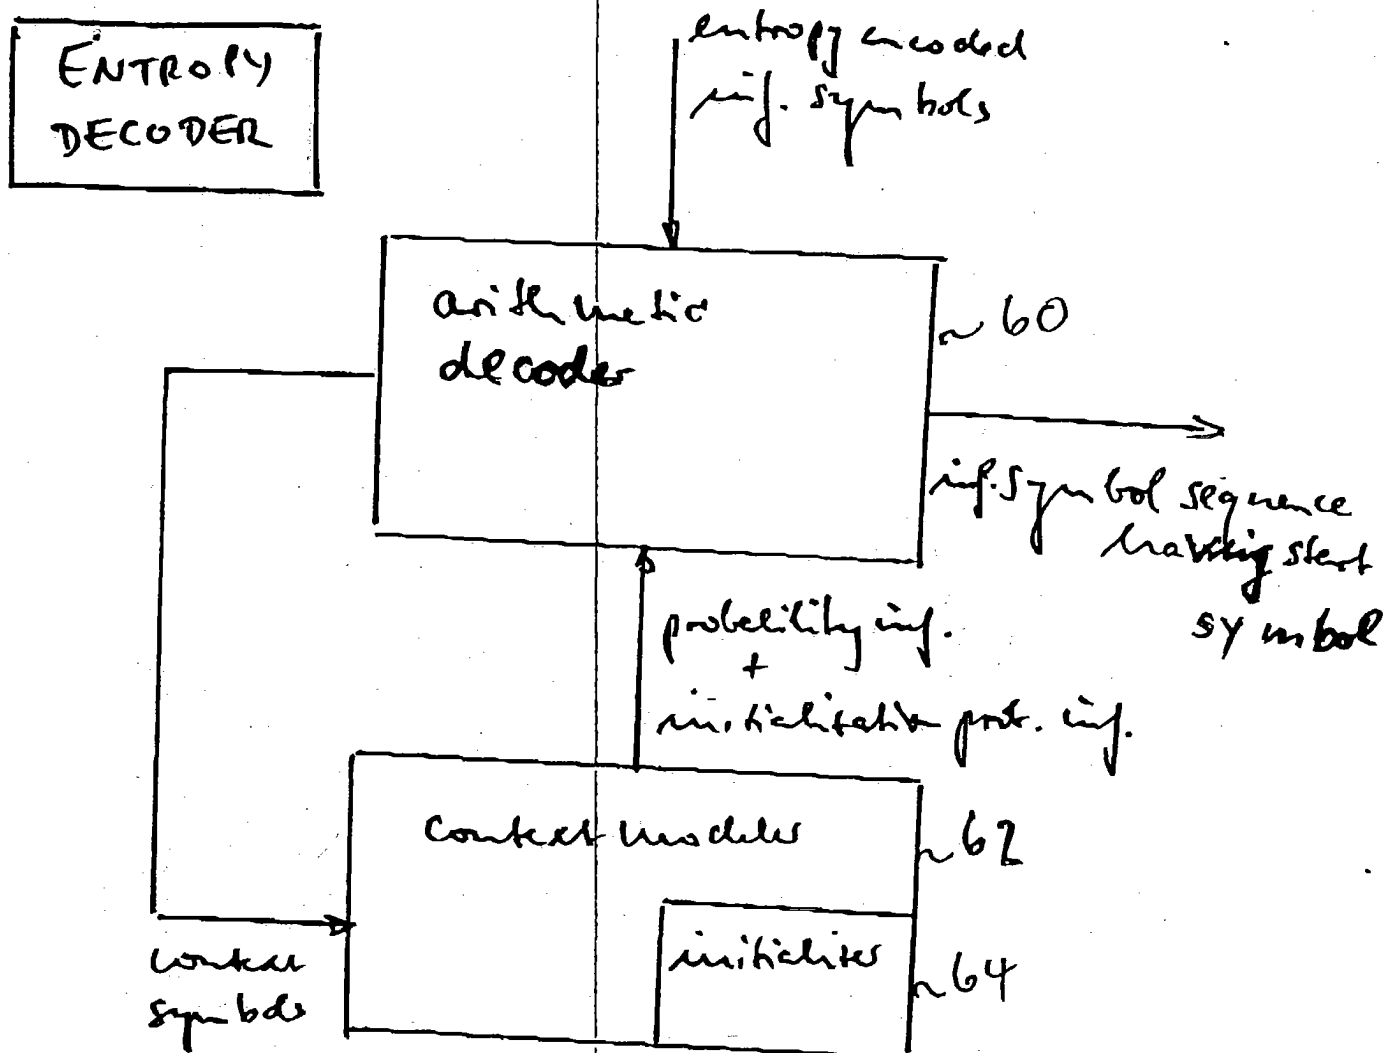 ENTROPY
DECODER
entropy encoded
inf. symbols
arithmetic
decoder
60
inf. symbol sequence
having start
symbol
probability inf.
+
initialisation prob. inf.
context modeler
62
initialiser
64
context
symbols